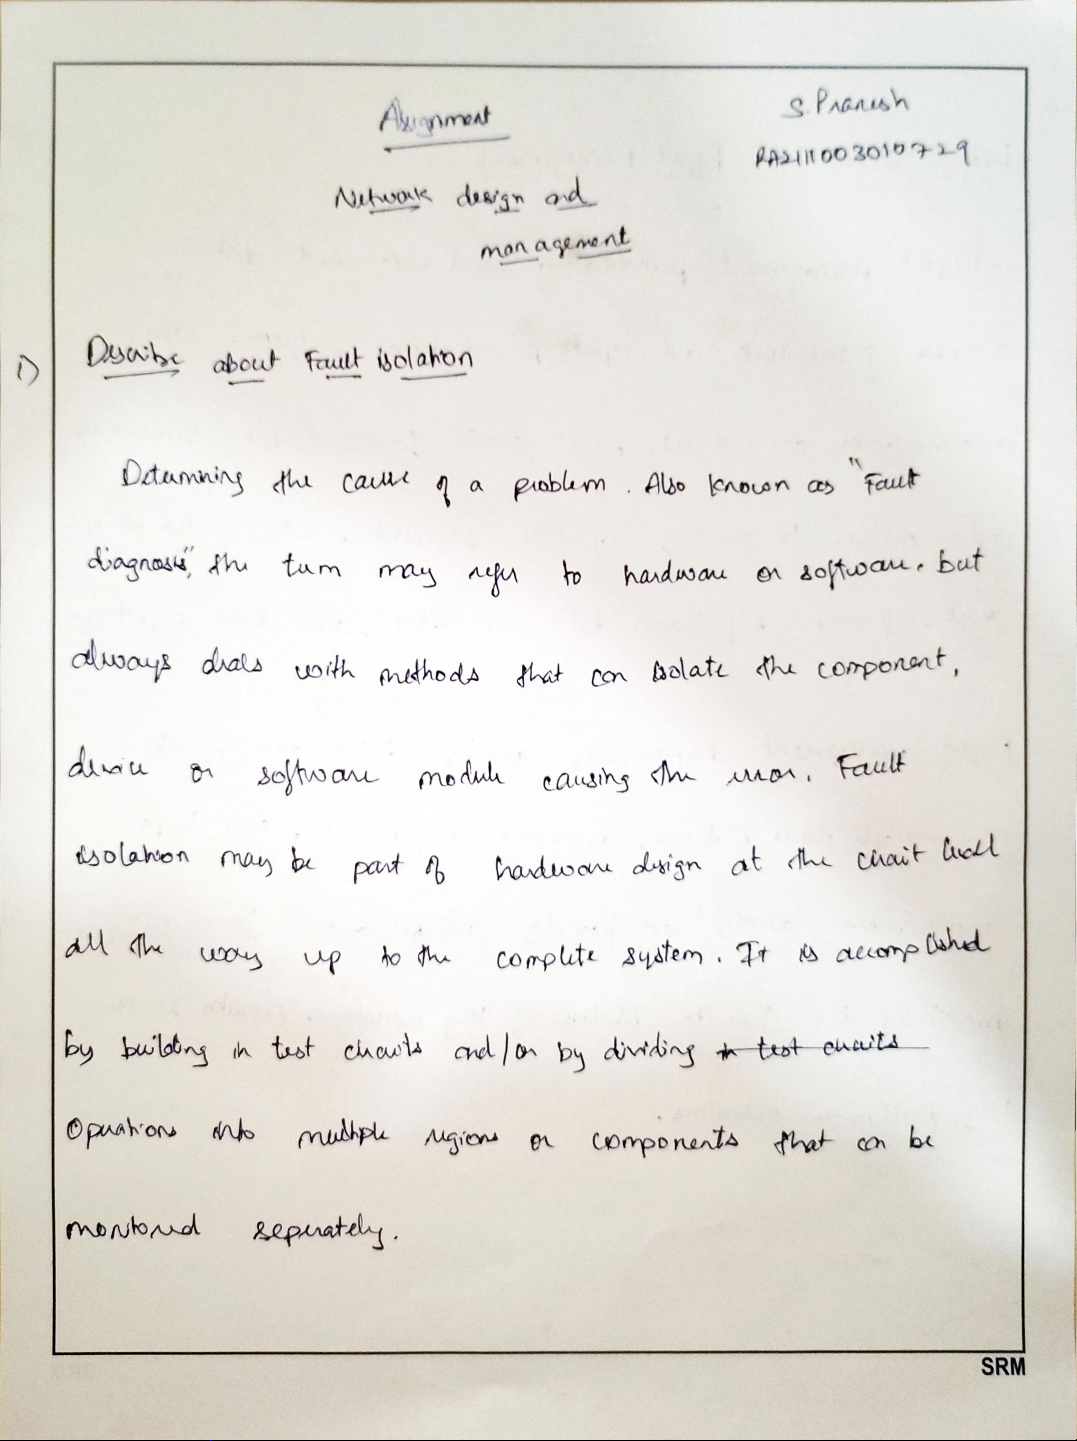 Assignment
S. Pranesh
RA2111003010729
Network design and
management
1) Describe about Fault isolation
Determining the cause of a problem. Also known as "Fault
diagnosis", the term may refer to hardware or software, but
always deals with methods that can isolate the component,
device or software module causing the error. Fault
isolation may be part of hardware design at the circuit level
all the way up to the complete system. It is accomplished
by building in test circuits and/or by dividing in test circuits
Operations into multiple regions or components that can be
monitored seperately.
SRM